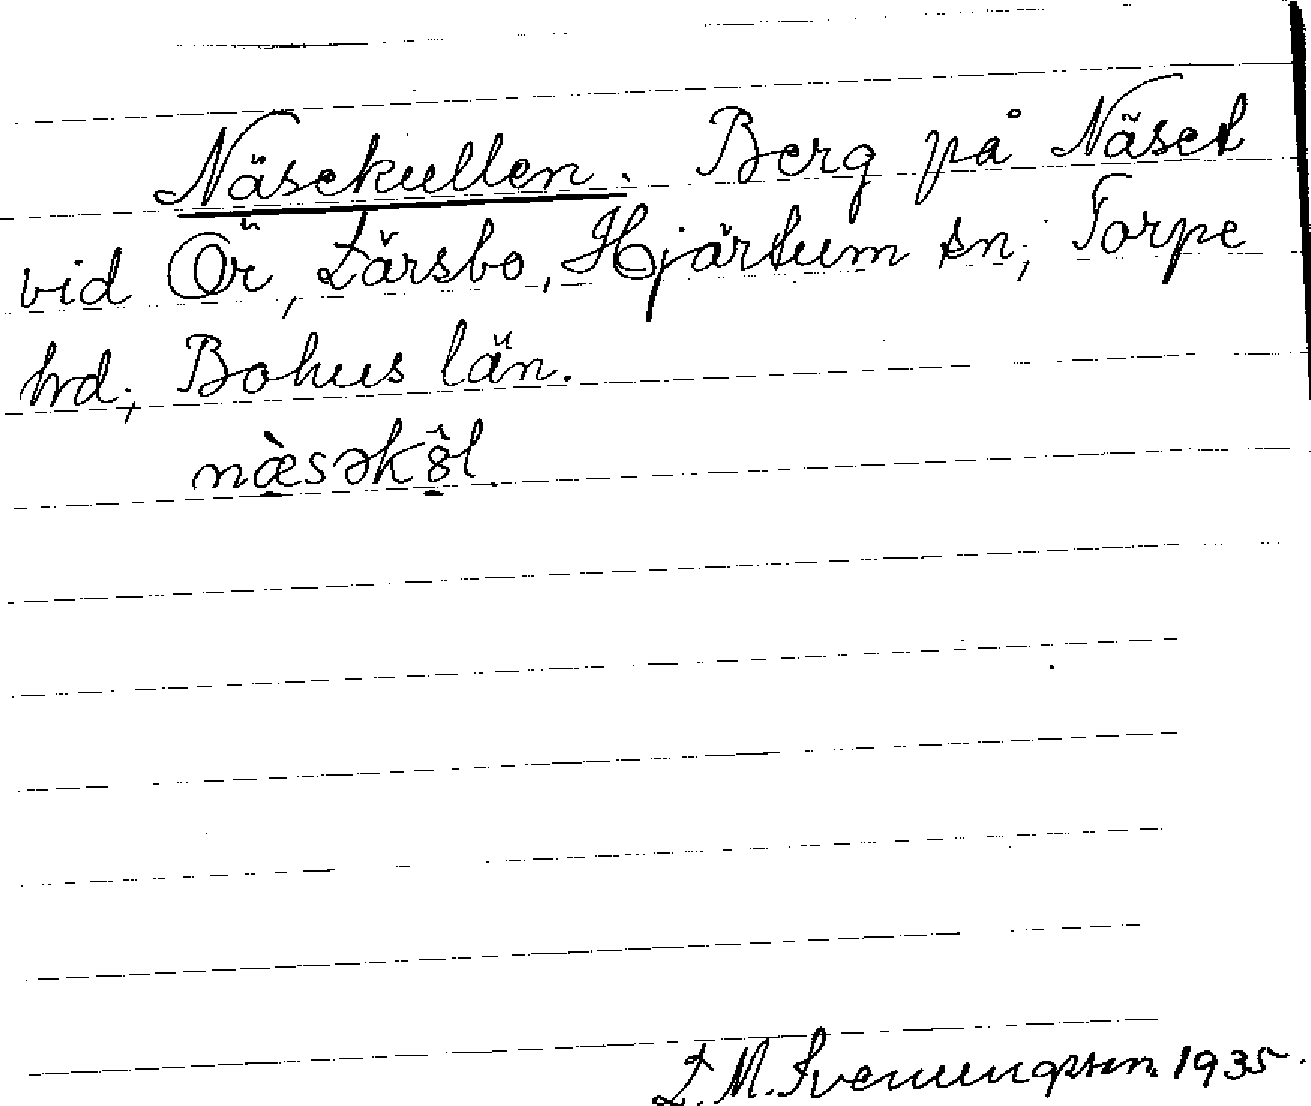 Näsekullen. Berg på Näset
vid Ör, Lärsbo, Hjärtum sn, Torpe
hd, Bohus län.
næ̀səkȣ̂l
L. M. Svenungsson 1935.